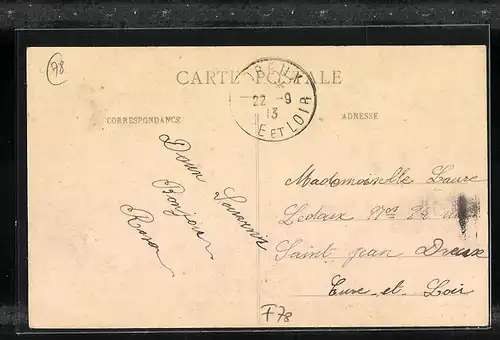 78
CARTE POSTALE
DREUX
22 - 9
13
EURE ET LOIR
CORRESPONDANCE
ADRESSE
Doux Souvenir
Bonjour
Rosa
Mademoiselle Laure
Ledoux
Saint Jean Dreux
Eure-et-Loir
F78